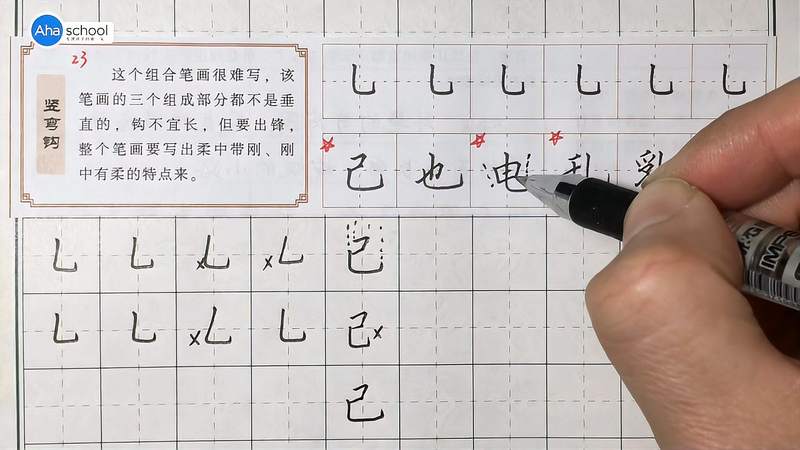 Aha school
23
竖弯钩
这个组合笔画很难写，该
笔画的三个组成部分都不是垂
直的，钩不宜长，但要出锋，
整个笔画要写出柔中带刚、刚
中有柔的特点来。
乚 乚 乚 乚 乚 乚
己 也 电 乱 乳
乚 乚 乚 乚 己
乚 乚 乚 乚 己
己